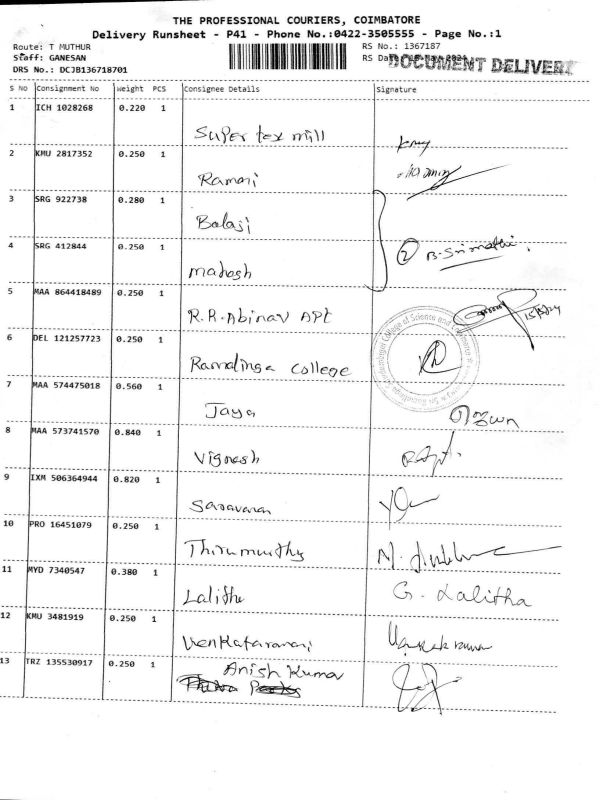 THE PROFESSIONAL COURIERS, COIMBATORE
Delivery Runsheet - P41 - Phone No.:0422-3505555 - Page No.:1
Route: T MUTHUR RS No.: 1367187
Staff: GANESAN RS Da DOCUMENT DELIVERY
DRS No.: DCJB136718701
S No Consignment No Weight PCS Consignee Details Signature
1 ICH 1028268 0.220 1
Super tex mill
2 KMU 2817352 0.250 1
Ramani
3 SRG 922738 0.280 1
Balaji
4 SRG 412844 0.250 1 2 B. Srimathi
mahesh
5 MAA 864418489 0.250 1
R.R. Abinav APt
6 DEL 121257723 0.250 1
Ramalinga college
7 MAA 574475018 0.560 1
Jaya
8 MAA 573741570 0.840 1
Vignesh
9 IXM 506364944 0.820 1
Saravanan
10 PRO 16451079 0.250 1
Thirumurthy
11 MYD 7340547 0.380 1
Lalitha G. Lalitha
12 KMU 3481919 0.250 1
Venkataramani
13 TRZ 135530917 0.250 1 Anish Kumar